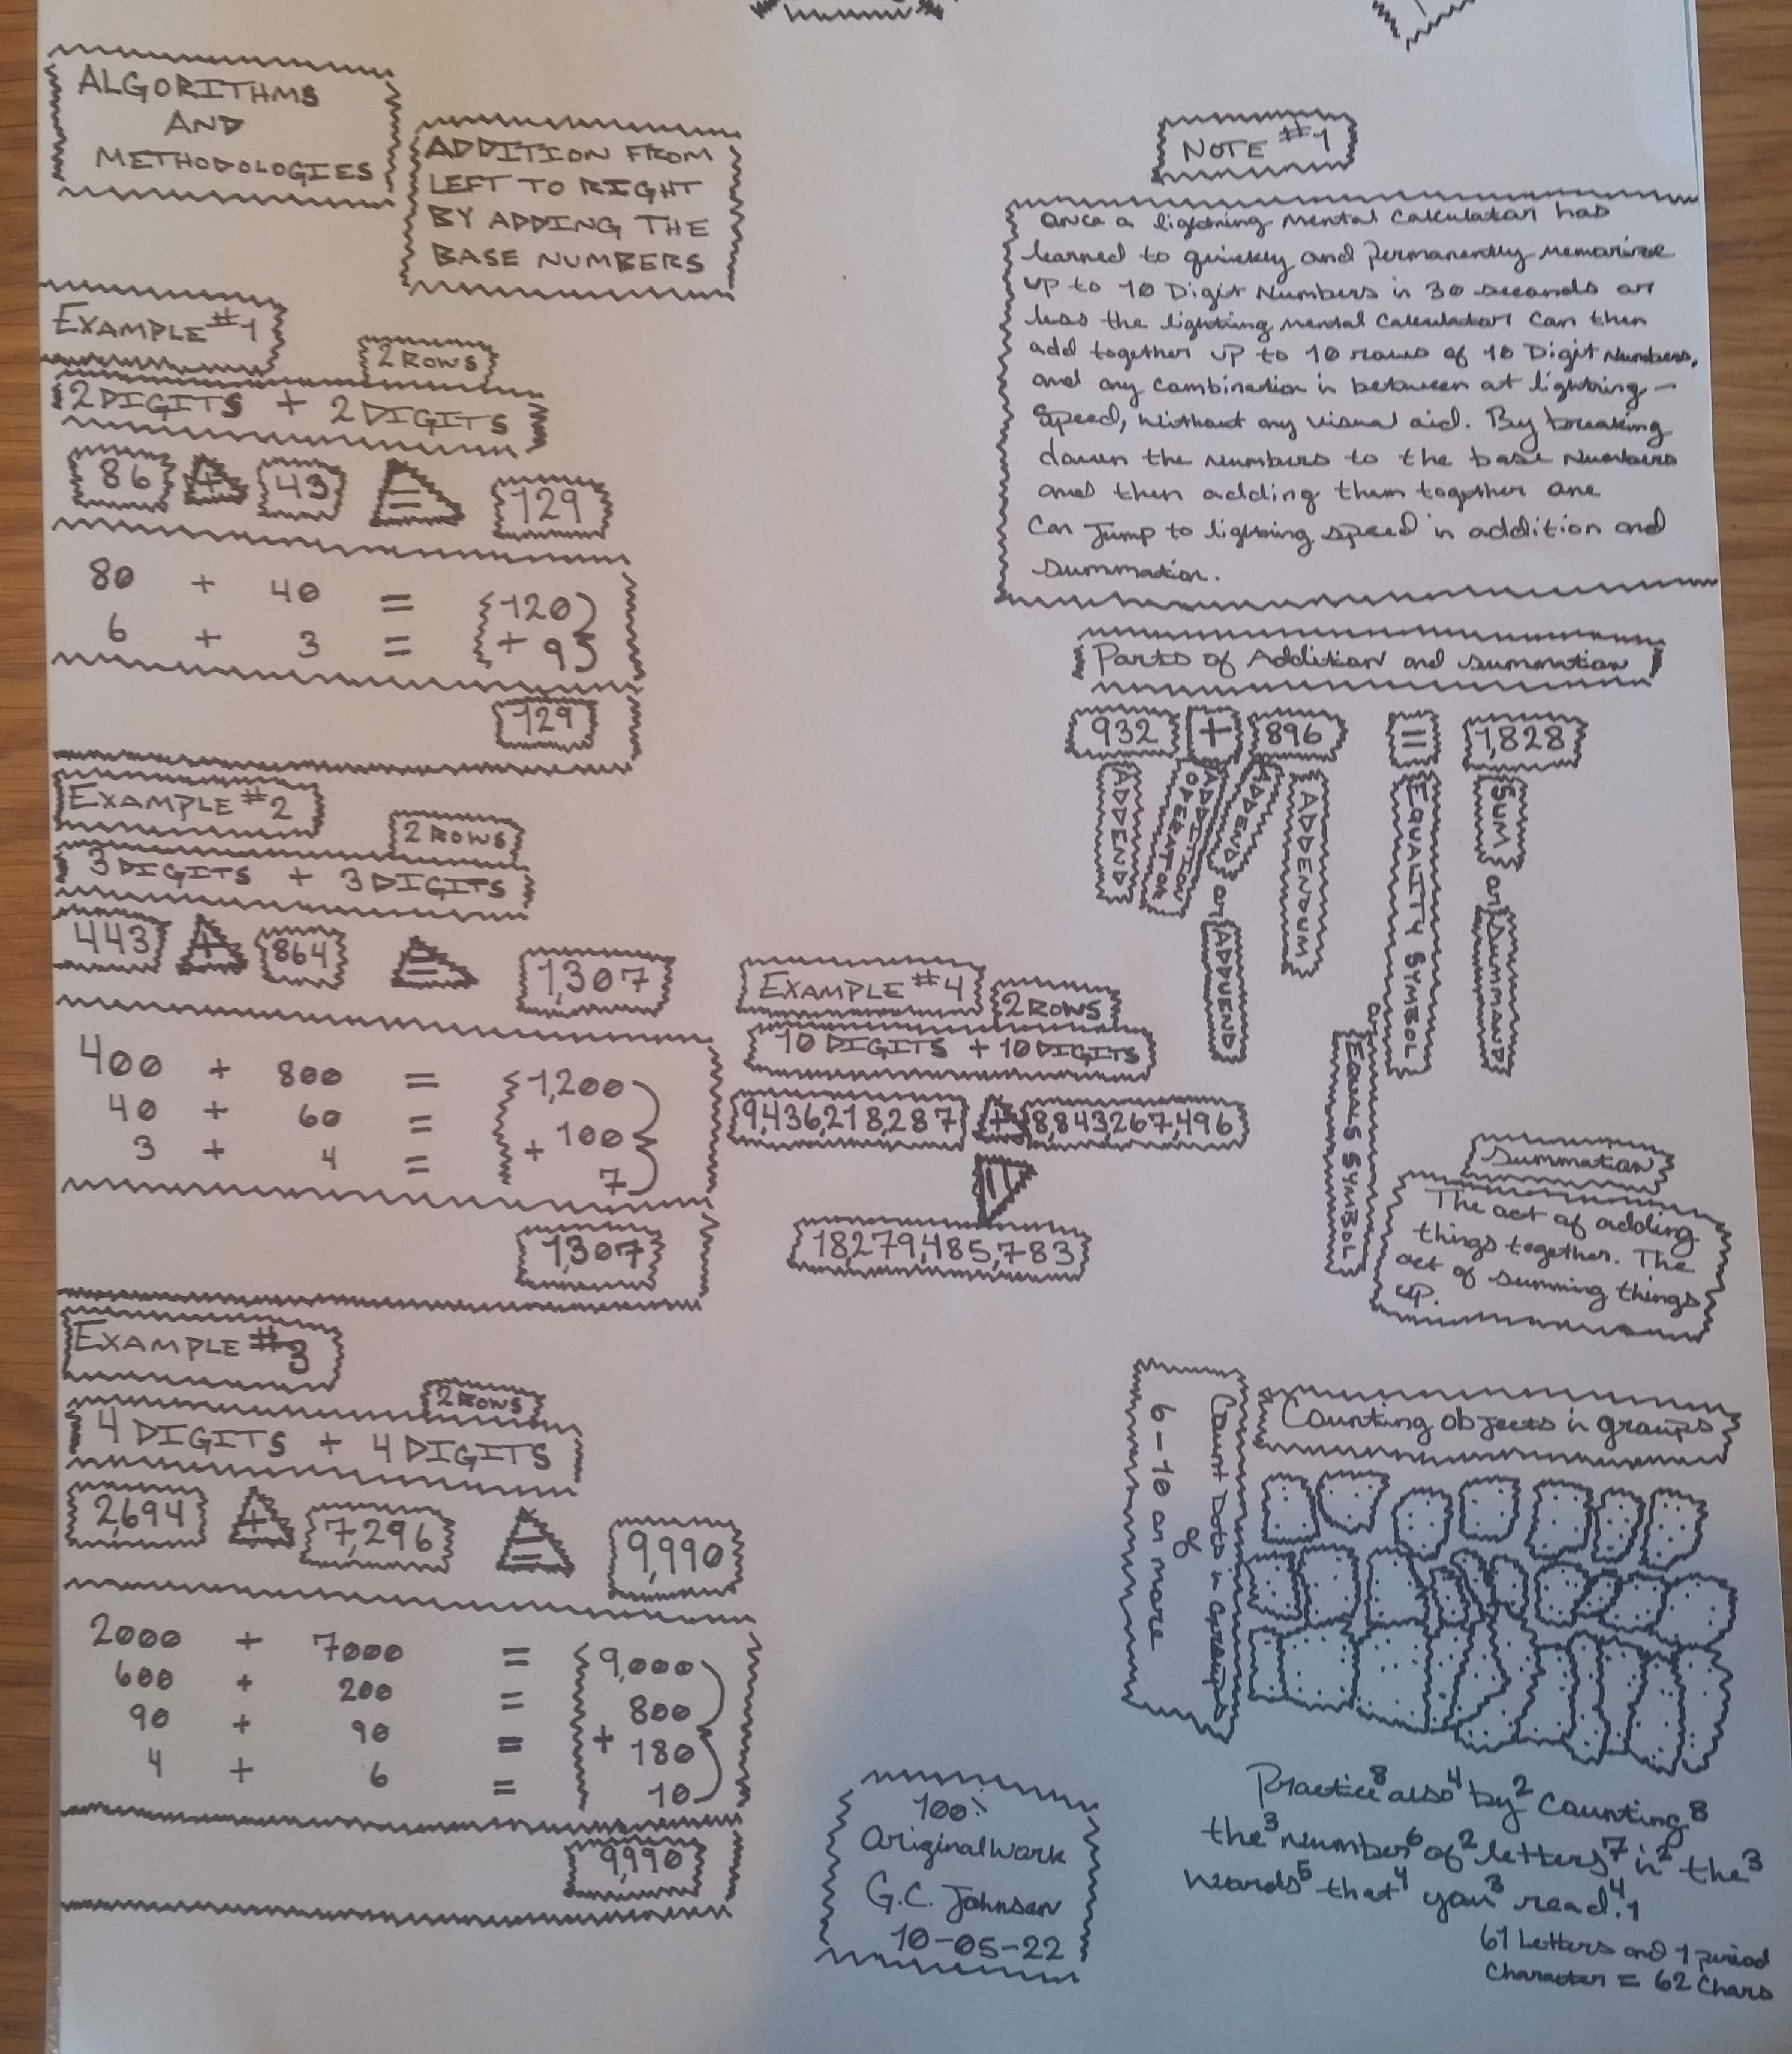 ALGORITHMS
AND
METHODOLOGIES
ADDITION FROM
LEFT TO RIGHT
BY ADDING THE
BASE NUMBERS
EXAMPLE #1
2 ROWS
2 DIGITS + 2 DIGITS
86 + 43 = 129
80 + 40 = 120
6 + 3 = + 9
129
EXAMPLE #2
2 ROWS
3 DIGITS + 3 DIGITS
443 + 864 = 1,307
400 + 800 = 1,200
40 + 60 = 100
3 + 4 = + 7
1,307
EXAMPLE #3
2 ROWS
4 DIGITS + 4 DIGITS
2,694 + 7,296 = 9,990
2000 + 7000 = 9,000
600 + 200 = 800
90 + 90 = + 180
4 + 6 = 10
9,990
EXAMPLE #4
2 ROWS
10 DIGITS + 10 DIGITS
9,436,218,287 + 8,843,267,496
=
18,279,485,783
NOTE #1
Once a lightning mental calculator has
learned to quickly and permanently memorize
up to 10 Digit Numbers in 30 seconds or
less the lightning mental calculator can then
add together up to 10 rows of 10 Digit Numbers,
and any combination in between at lightning-
speed, without any visual aid. By breaking
down the numbers to the base numbers
and then adding them together one
can jump to lightning speed in addition and
summation.
Parts of Addition and summation
932 + 896 = 1,828
ADDEND
ADDITION
OPERATOR
ADDEND
or
ADDUEND
ADDENDUM
EQUALITY SYMBOL
or
EQUALS SYMBOL
SUM
or
SUMMAND
Summation
The act of adding
things together. The
act of summing things
up.
Counting objects in groups
Count Dots in Groups
of
6-10 or more
Practice8 also4 by2 counting8
the3 number6 of2 letters7 in2 the3
words5 that4 you3 read4.1
61 Letters and 1 period
Character = 62 Chars
100%
Original Work
G.C. Johnson
10-05-22